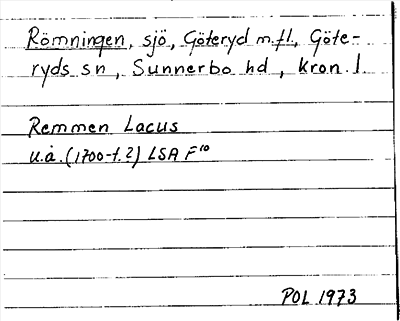 Römningen, sjö, Göteryd m.fl., Göte-
ryds sn, Sunnerbo hd, Kron. l.
Remmen Lacus
u.å. (1700-t.?) LSA F¹⁰
POL 1973